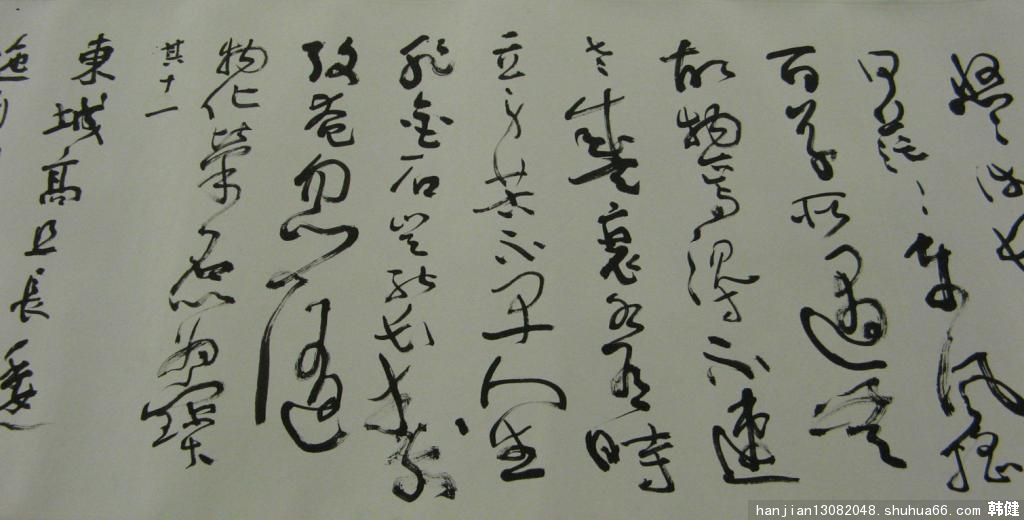 悠〻涉長
何茫〻東風搖
百草所遇無
故物焉得不速
老盛衰各有時
立身苦不早人生
非金石豈能長壽
攷奄忽隨
物化榮名以為寶
其十一
東城高且長逶
迤自
hanjian13082048.shuhua66.com 韩健